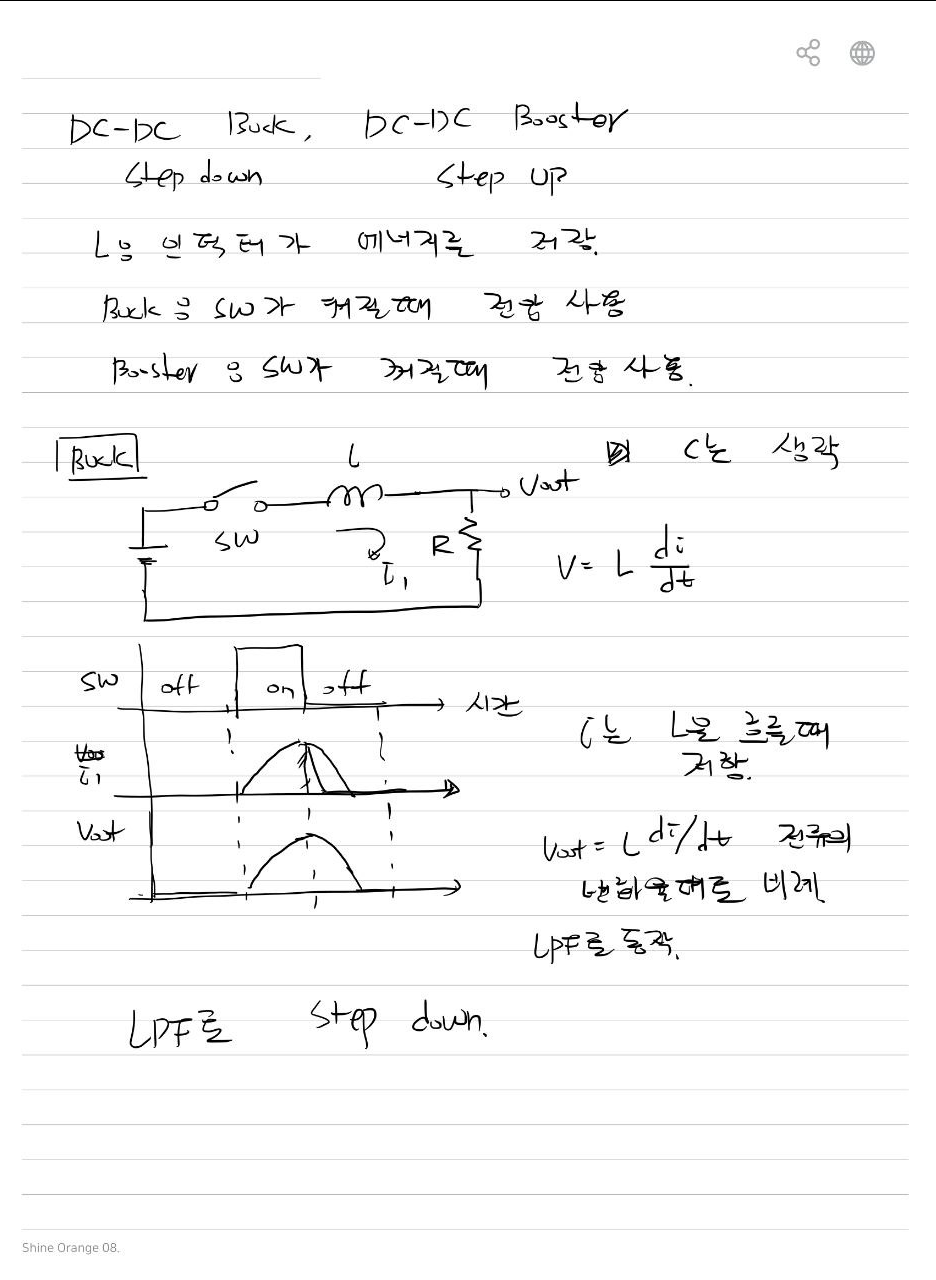 DC-DC Buck, DC-DC Booster
Step down Step up
L은 인덕터가 에너지를 저장.
Buck은 SW가 켜질때 전압 사용
Booster은 SW가 꺼질때 전압 사용.
Buck
C는 생략
L
Vout
SW
R
i1
V = L di/dt
SW off on off
시간
i는 L을 흐를때
저장.
i1
Vout
Vout = L di/dt 전류의
변화율대로 비례.
LPF로 동작.
LPF로 Step down.
Shine Orange 08.